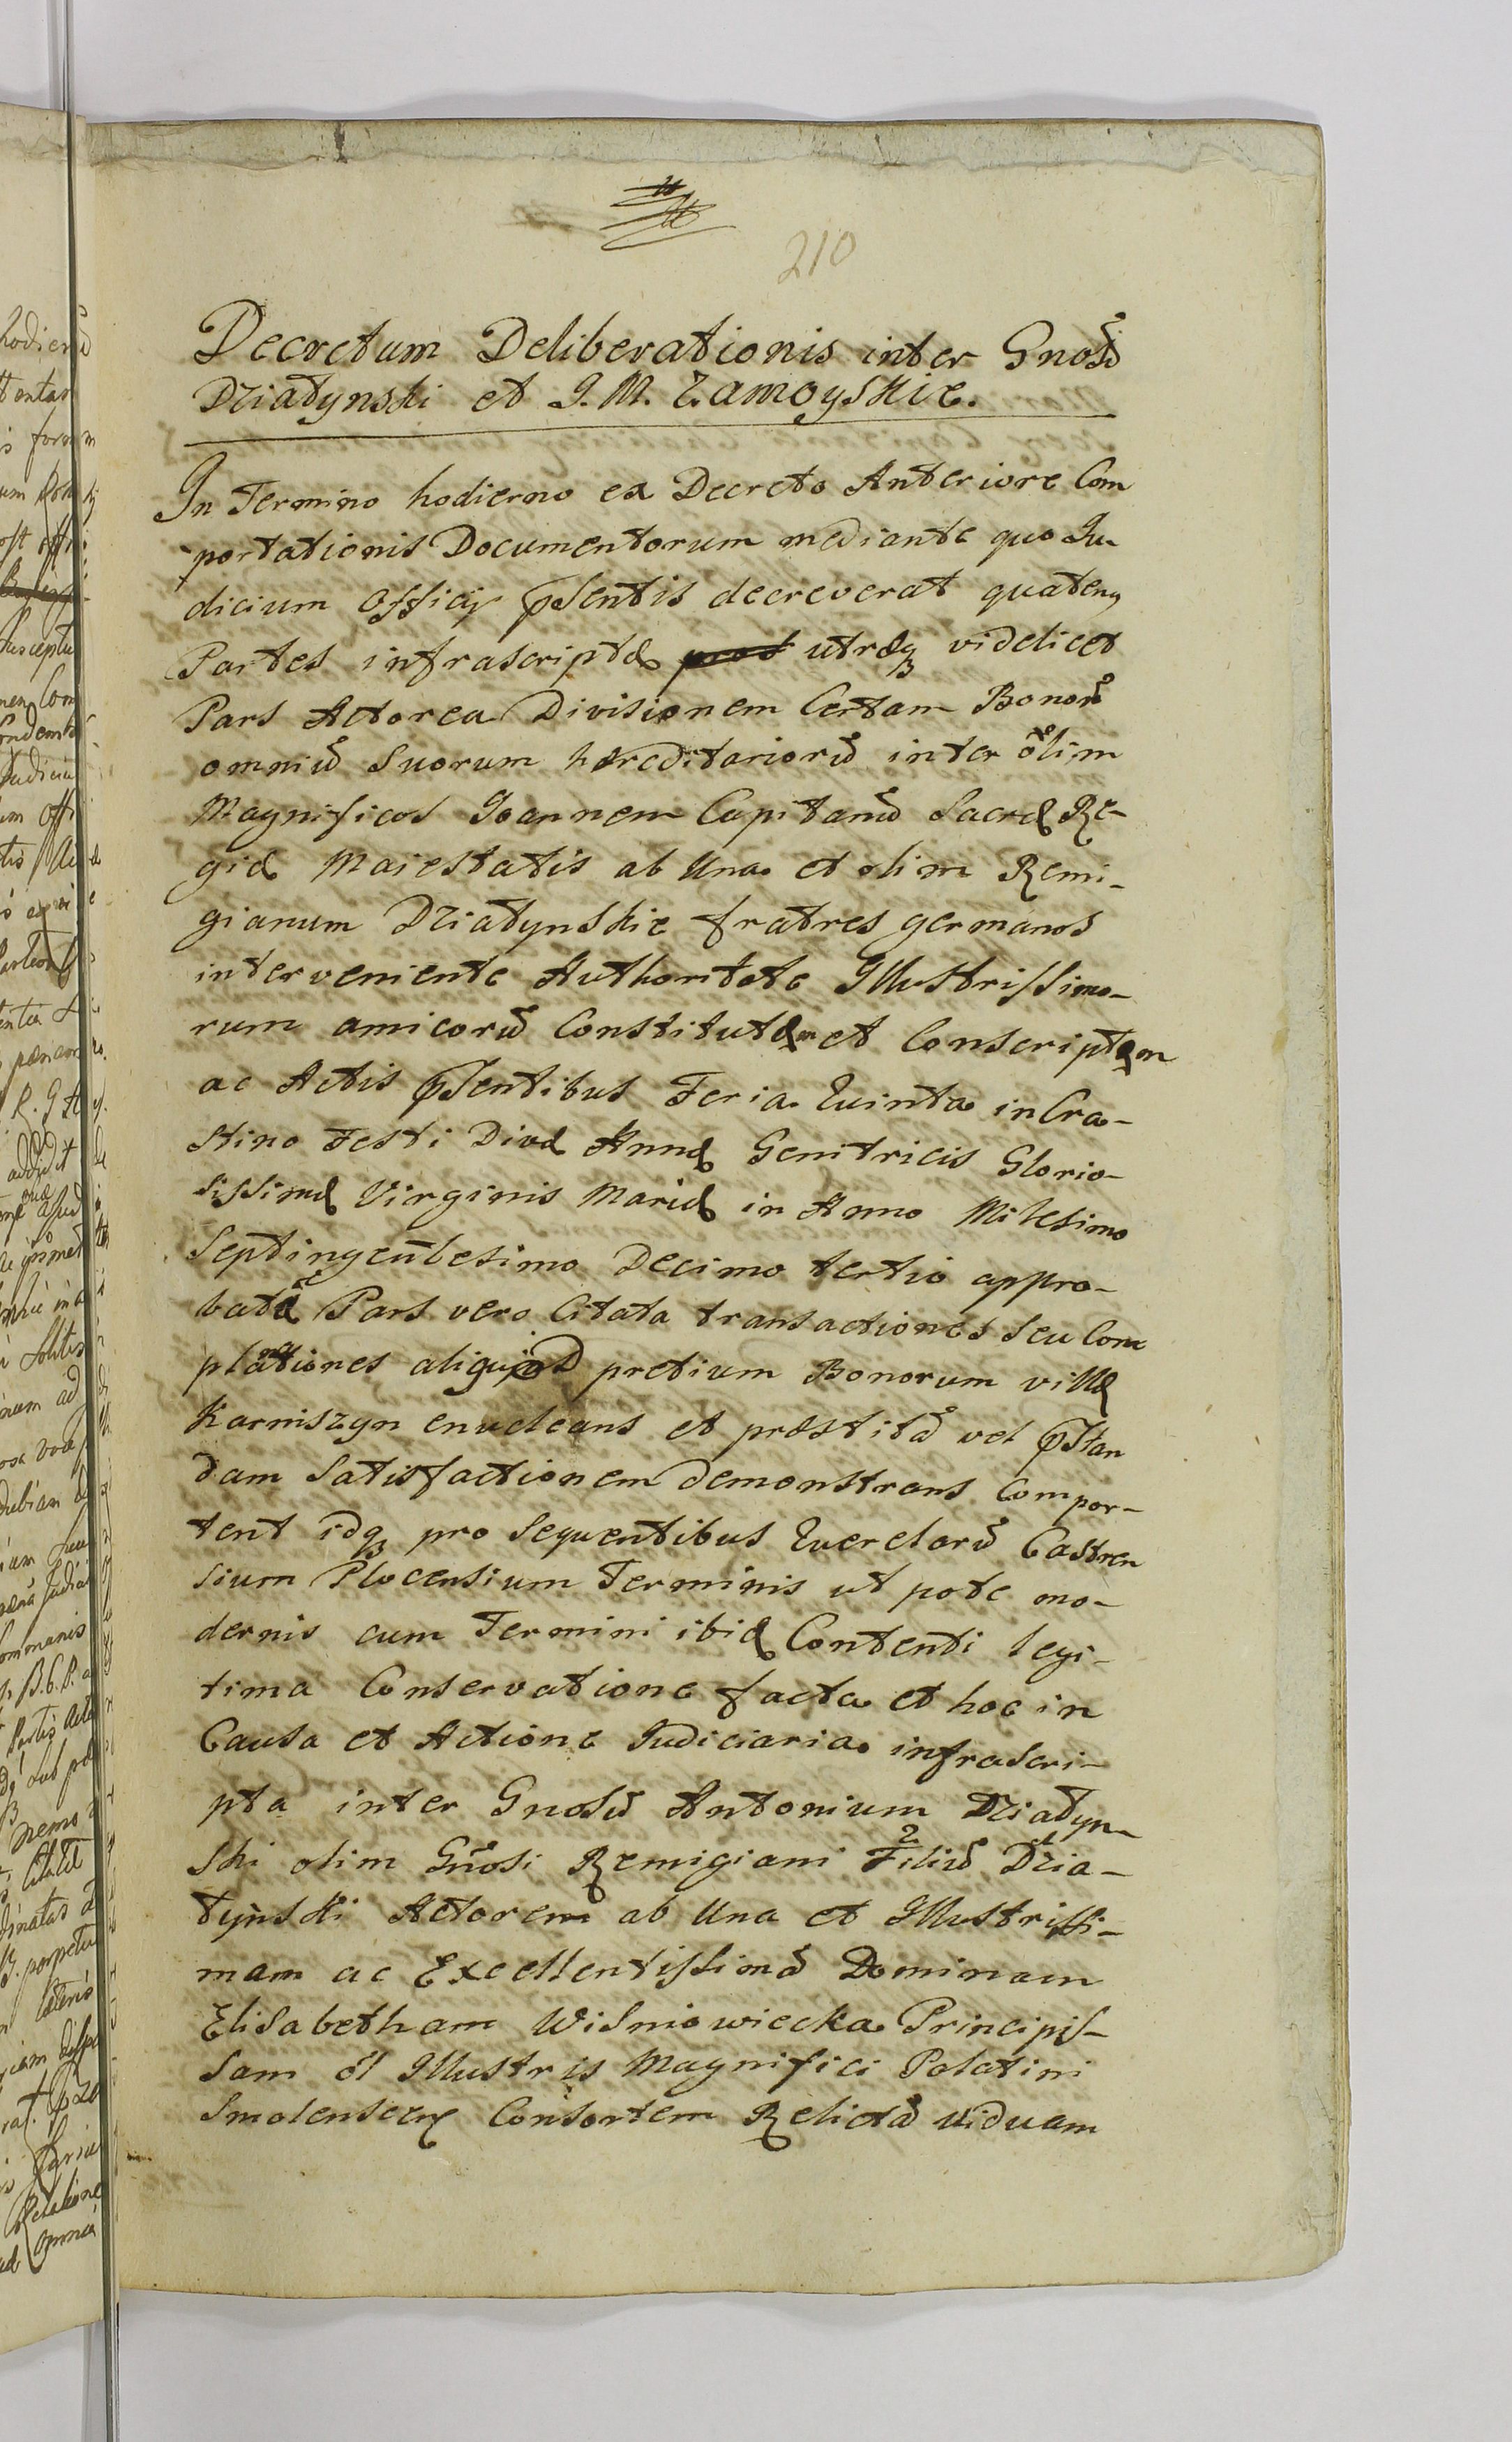 210
Decretum Deliberationis inter Gnosū
Dziatynski et I. M. Zamoyskie.
In Termino hodierno ex Decreto Anteriore Com
portationis Documentorum mediante quo Ju-
dicium Officij p̄sentis decreverat quatenꝰ
Partes infrascriptæ utræqꝫ videlicet
Pars Actorea Divisionem Certam Bonorū
omniū Suorum hæreditariorū inter olim
Magnificos Joannem Capitanū Sacræ Re-
giæ Maiestatis ab Una et olim Remi-
gianum Dziatynskie fratres germanos
interveniente Authoritate Illustrissimo-
rum amicorū Constitutam et Conscriptam
ac Actis p̄sentibus Feria Quinta in Cra-
stino Festi Divæ Annæ Genitricis Glorio-
sissimæ Virginis Mariæ in Anno Milesimo
Septingentesimo Decimo tertio appro-
batā Pars vero Citata transactiones seu Com
plationes aliquod pretium Bonorum villæ
Karniszyn enucleans et præstitā vel p̄stan
dam Satisfactionem demonstrans Compor-
tent idqꝫ pro Sequentibus Querelarū Castren
sium Plocensium Terminis ut pote mo-
dernis cum Termini ibid Contenti legi-
tima Conservatione facta et hoc in
Causa et Actione Judiciaria infrascri-
pta inter Gnosū Antonium Dziatyn-
ski olim Gn̄osi Remigiani 2 Filiū Dzia-
tynski Actorem ab Una et Illustrissi-
mam ac Excellentissimā Dominam
Elisabetham Wisniowiecka Principis-
sam ol̄ Illustris Magnifici Palatini
Smolenscen Consortem Relictā viduam